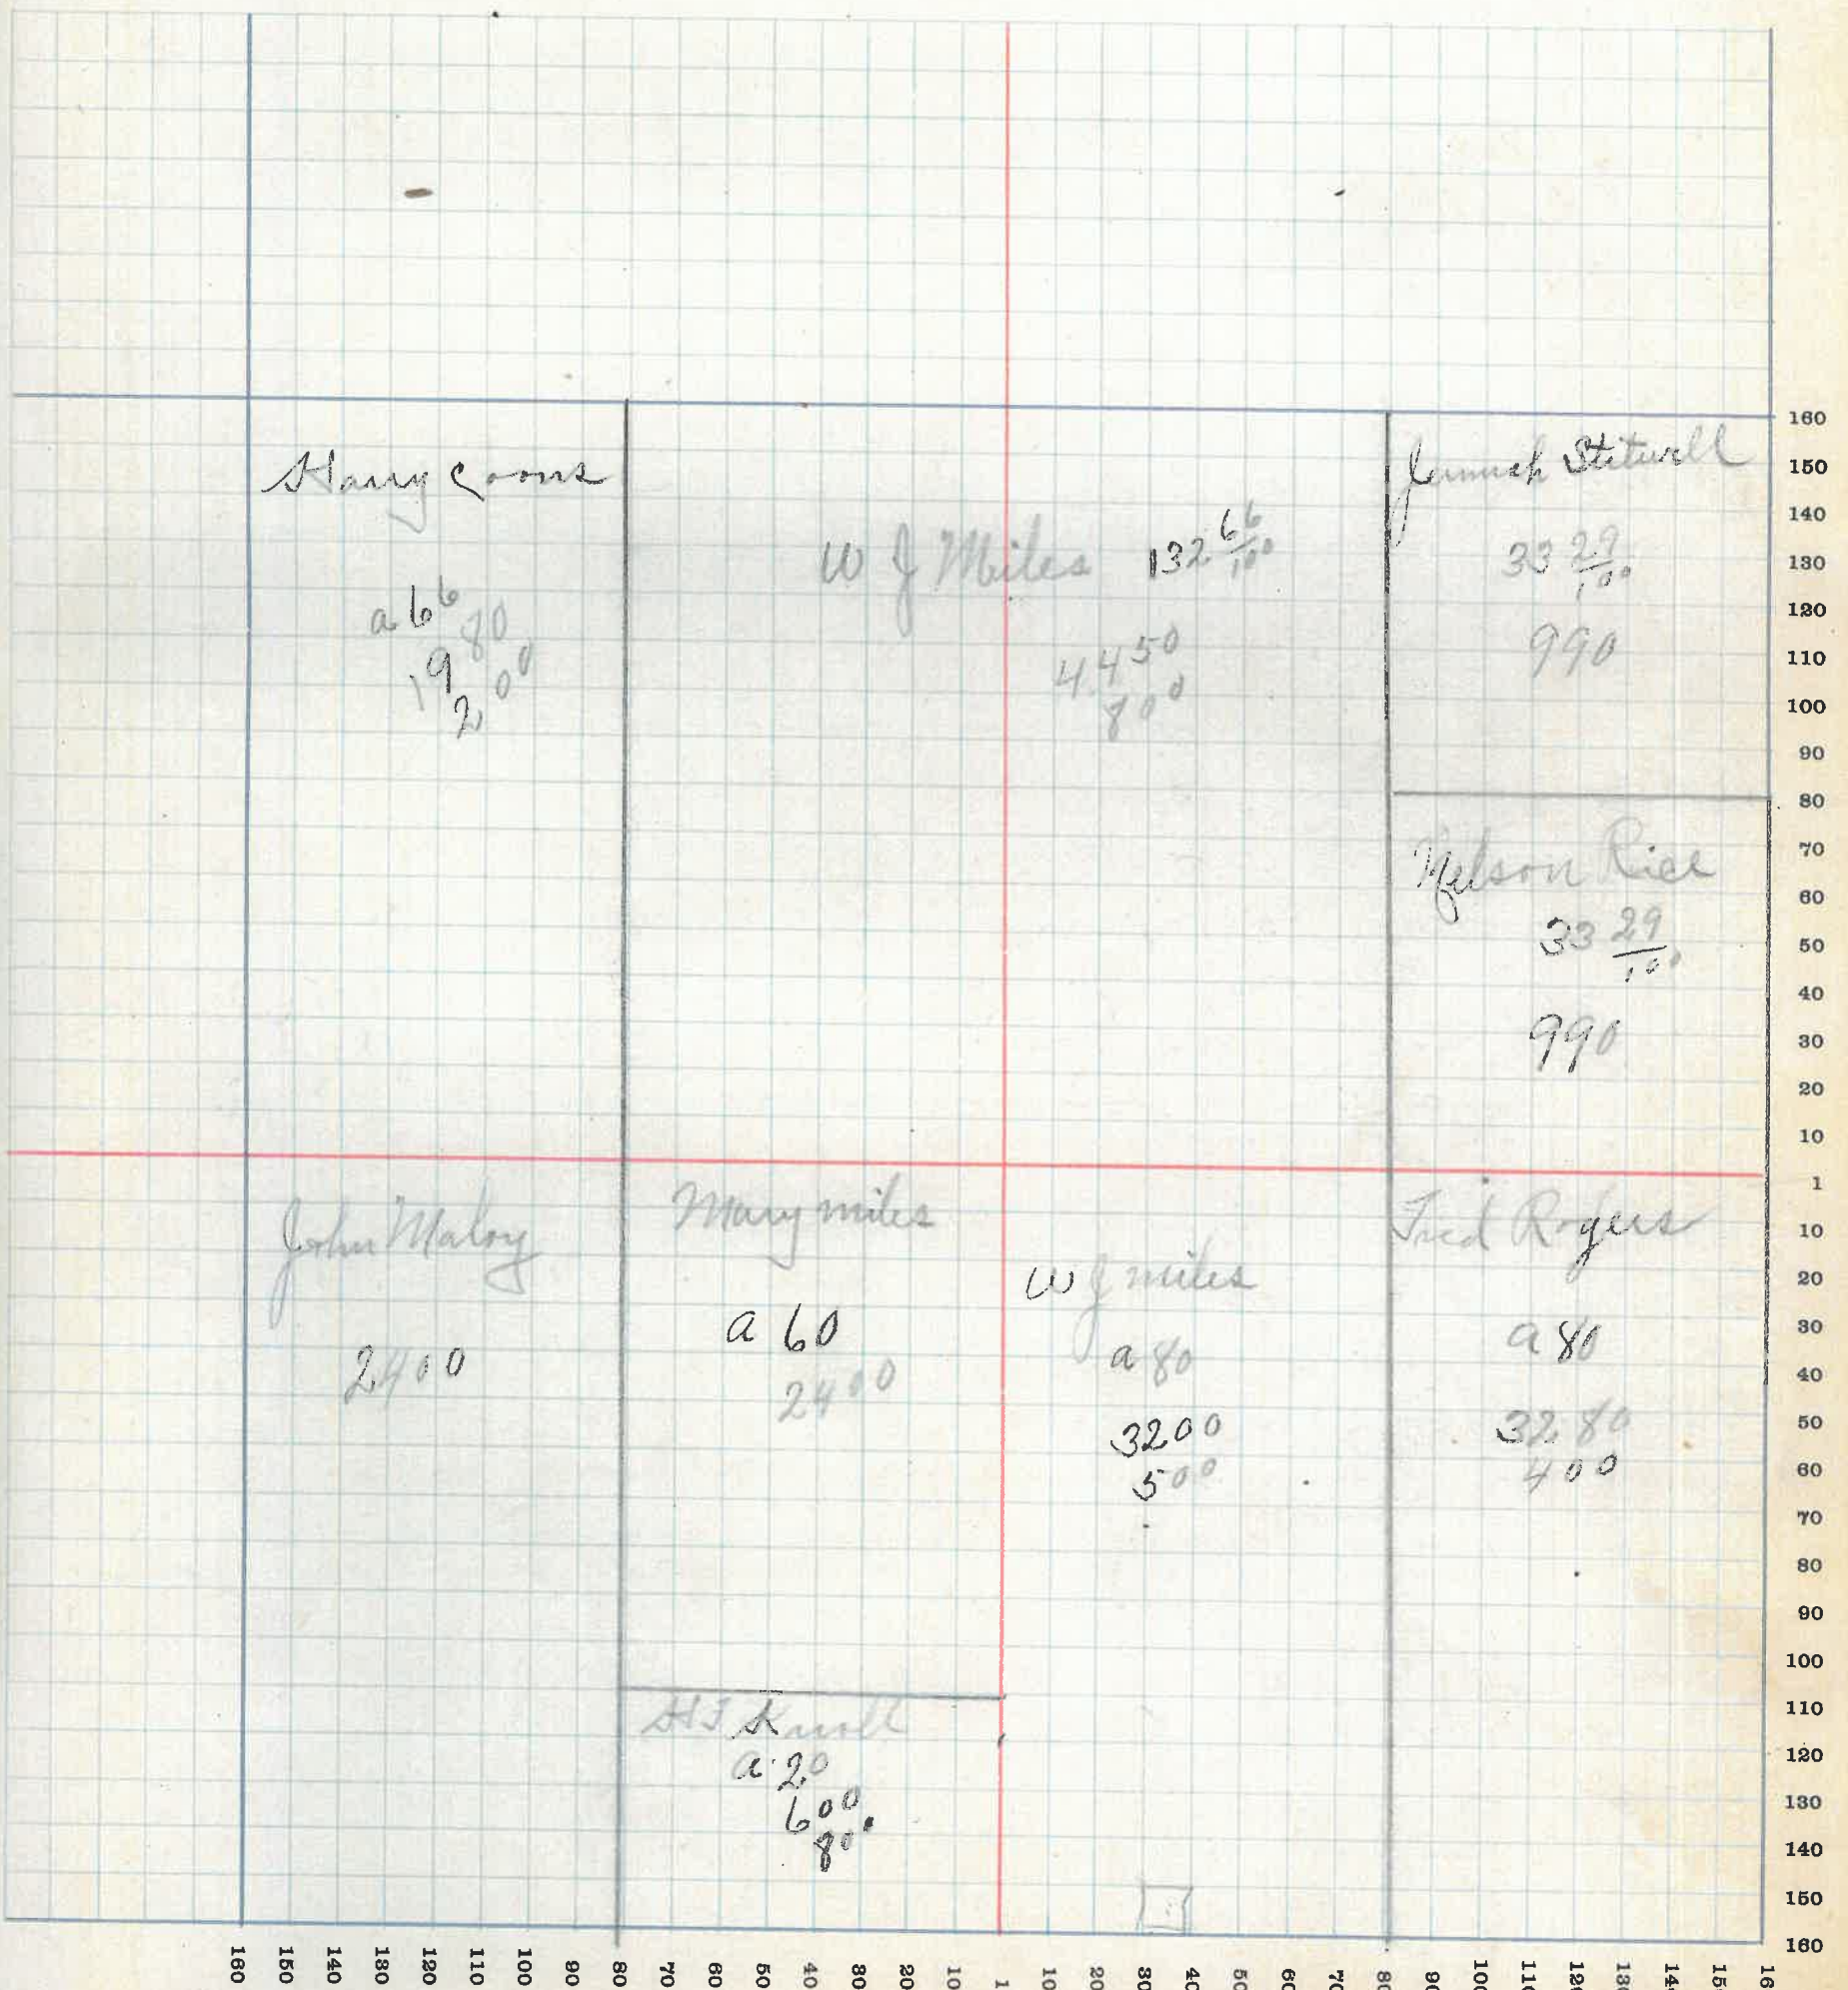 Harry Coons
a 66
80
19
00
2
W J Miles 132 66/100
4450
800
Stitwell
33 29/100
990
Nelson Rice
33 29/100
990
John Maloy
2400
Mary miles
a 60
2400
W J miles
a 80
3200
500
Fred Rogers
a 80
3280
400
a. 20
600
800
160
150
140
130
120
110
100
90
80
70
60
50
40
30
20
10
1
10
20
30
40
50
60
70
80
90
100
110
120
130
140
150
160
160 150 140 130 120 110 100 90 80 70 60 50 40 30 20 10 1 10 20 30 40 50 60 70 80 90 100 110 120 130 14 15 16